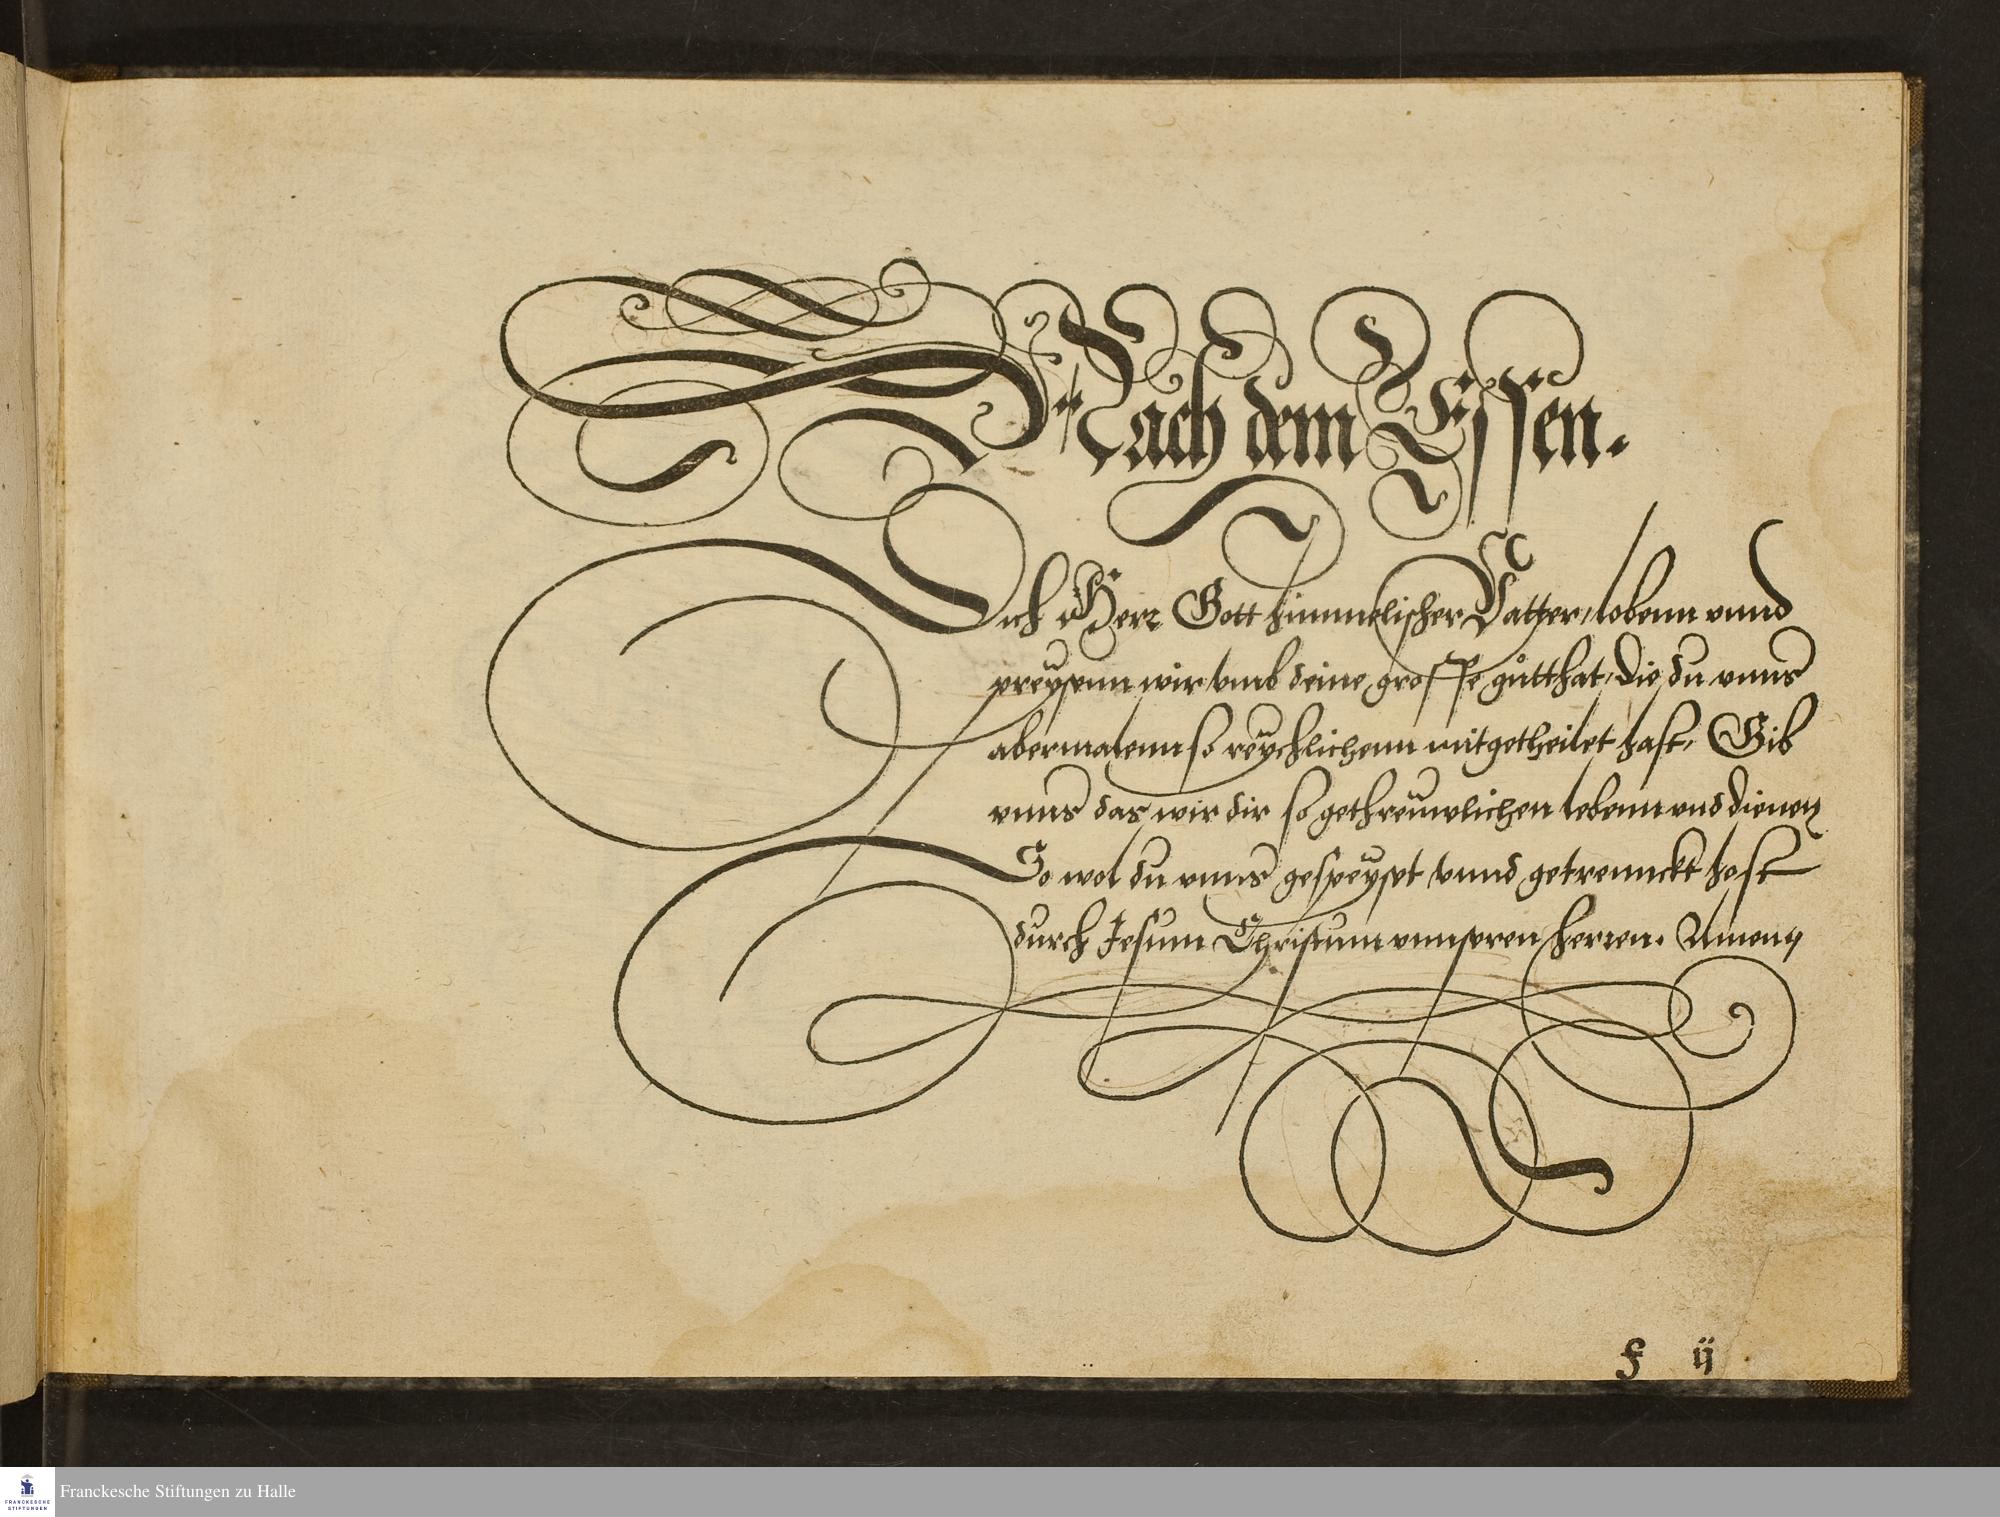 Nach dem Essen.
Dich Herr Gott himmelischer Vatter, lobenn vnnd
preysenn wir vmb deine grosse gůtthat, die du vnns
abermalenn so reychlichenn mitgetheilet hast, Gib
vnns das wir dir so gethreüwlichen lebenn vnd dienen
So wol du vnns gespeyset vnnd getrennckt hast
durch Jesum Christum vnnseren herren. Amen
f ij
FRANCKESCHE
STIFTUNGEN
Franckesche Stiftungen zu Halle